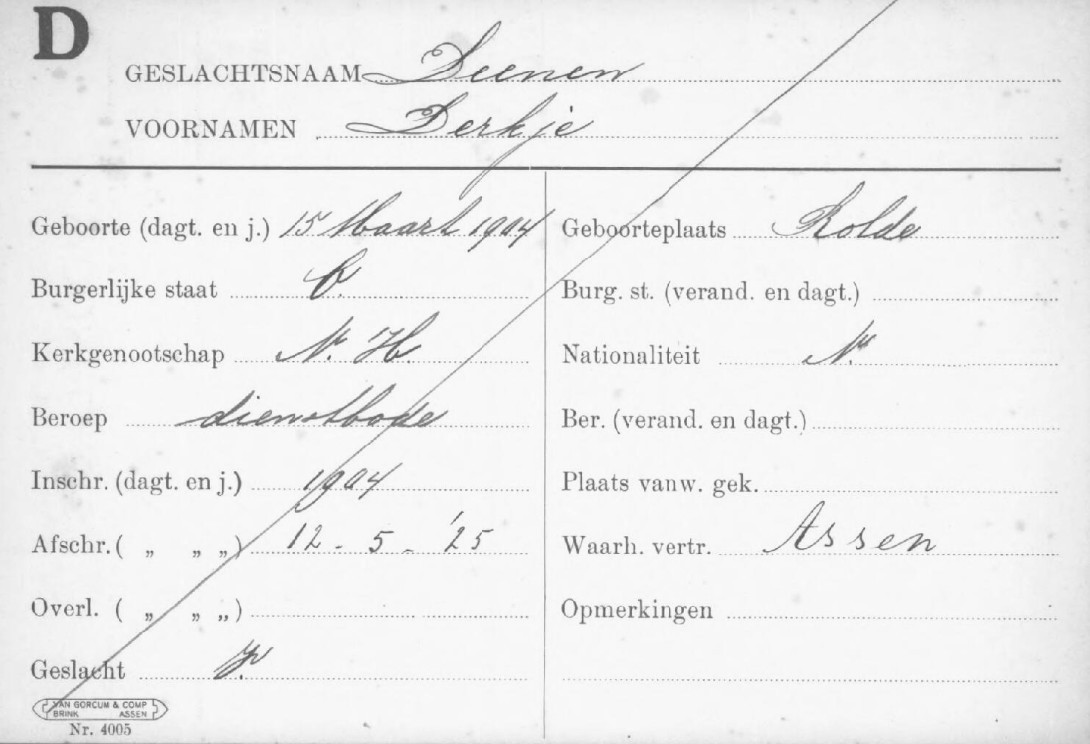 D
GESLACHTSNAAM Deenen
VOORNAMEN Derkje
Geboorte (dagt. en j.) 15 Maart 1904
Geboorteplaats Rolde
Burgerlijke staat O.
Burg. st. (verand. en dagt.)
Kerkgenootschap N. H
Nationaliteit N.
Beroep dienstbode
Ber. (verand. en dagt.)
Inschr. (dagt. en j.) 1904
Plaats vanw. gek.
Afschr. ( „ „ „) 12 - 5 - '25
Waarh. vertr. Assen
Overl. ( „ „ „)
Opmerkingen
Geslacht V.
VAN GORCUM & COMP
BRINK ASSEN
Nr. 4005